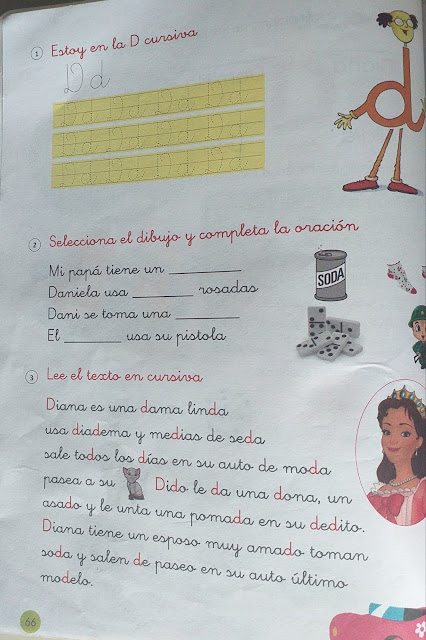 1 Estoy en la D cursiva
D d
Dd Dd Dd Dd Dd
Dd Dd Dd Dd Dd
Dd Dd Dd Dd Dd
2 Selecciona el dibujo y completa la oración
Mi papá tiene un ________
SODA
Daniela usa ________ rosadas
Dani se toma una ________
El ________ usa su pistola
3 Lee el texto en cursiva
Diana es una dama linda
usa diadema y medias de seda
sale todos los días en su auto de moda
pasea a su Dido le da una dona, un
asado y le unta una pomada en su dedito.
Diana tiene un esposo muy amado toman
soda y salen de paseo en su auto último
modelo.
66